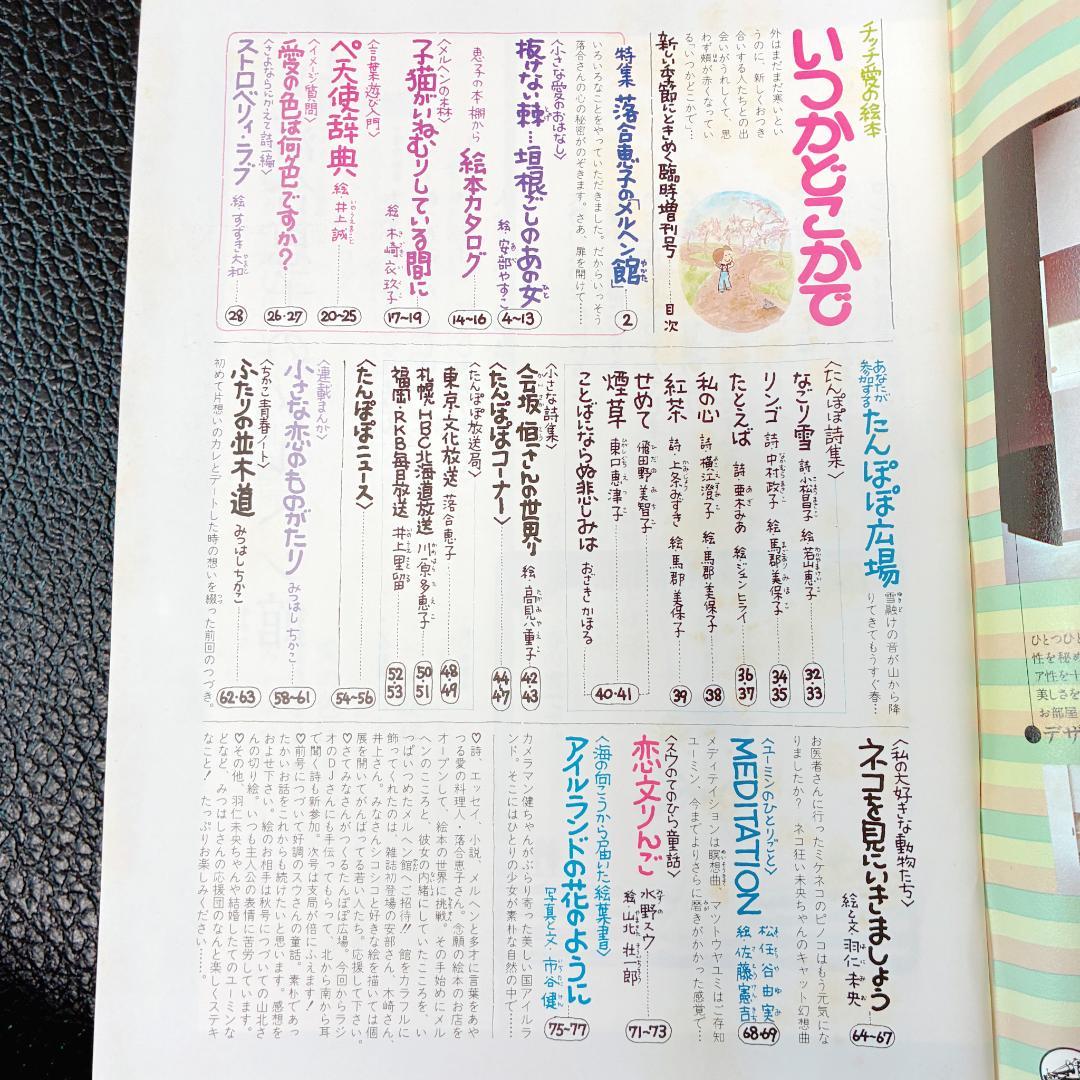 チッチ愛の絵本
いつかどこかで
外はまだまだ寒いとい
うのに、新しくおつき
合いする人たちとの出
会いがうれしくて、思
わず頬が赤くなってい
る「いつかどこかで」…
新しい季節にときめく臨時増刊号……目次
特集 落合恵子の「メルヘン館」 2
いろいろなことをやっていただきました。だからいっそう
落合さんの心の秘密がのぞきます。さあ、扉を開けて……
〈小さな愛のおはなし〉
抜けない棘…垣根ごしのあの女 絵・安部やすこ 4~13
恵子の本棚から 絵本カタログ 14~16
〈メルヘンの森〉
子猫がいねむりしている間に 絵・木崎衣玖子 17~19
〈言葉遊び入門〉
ペ天使辞典 絵・井上誠 20~25
〈イメージ質問〉
愛の色は何色ですか? 26・27
〈さよならにかえて詩一編〉
ストロベリィ・ラブ 絵・すずき大和 28
あなたが参加する たんぽぽ広場
雪融けの音が山から降
りてきてもうすぐ春…
〈たんぽぽ詩集〉
なごり雪 詩・小松昌子 絵・若山恵子 32・33
リンゴ 詩・中村政子 絵・馬郡美保子 34・35
たとえば 詩・亜木みあ 絵・ジョン・ヒライ 36・37
私の心 詩・横江澄子 絵・馬郡美保子 38
紅茶 詩・上条みずき 絵・馬郡美保子 39
せめて 飛田野美智子
煙草 東口恵津子 40・41
ことばにならぬ悲しみは おざきかほる
〈小さな詩集〉
会坂恒さんの世界 絵・高見八重子 42 43
〈たんぽぽコーナー〉 44 47
〈たんぽぽ放送局〉
東京・文化放送 落合恵子 48 49
札幌・HBC北海道放送 川原多恵子 50 51
福岡・RKB毎日放送 井上里留 52 53
〈たんぽぽニュース〉 54~56
〈連載まんが〉
小さな恋のものがたり みつはしちかこ 58~61
〈ちかこ青春ノート〉
ふたりの並木道 みつはしちかこ 62・63
初めて片想いのカレとデートした時の想いを綴った前回のつづき。
〈私の大好きな動物たち〉
ネコを見にいきましょう 絵と文・羽仁未央 64~67
お医者さんに行ったミケネコのピノコはもう元気にな
りましたか? ネコ狂い未央ちゃんのキャット幻想曲
〈ユーミンのひとりごと〉
MEDITATION 松任谷由実 絵・佐藤憲吉 68・69
メディテイションは瞑想曲。マツトウヤユミはご存知
ユーミン。今までよりさらに磨きがかかった感覚で…
〈スウのてのひら童話〉
恋文りんご 水野スウ 絵・山北壮一郎 71~73
〈海の向こうから届いた絵葉書〉
アイルランドの花のように 写真と文・市谷健 75~77
カメラマン健ちゃんがぶらり寄った美しい国アイルラ
ンド。そこにはひとりの少女が素朴な自然の中で……
♡詩、エッセイ、小説、メルヘンと多才に言葉をあや
つる愛の料理人・落合恵子さん。念願の絵本のお店を
オープンして、絵本の世界に挑戦。その手始めにメル
ヘンのこころと、彼女の内緒にしていたこころを、い
っぱいつめたメルヘン館へご招待!! 館をカラフルに
飾ってくれたのは、雑誌初登場の安部さん、木崎さん、
井上さん。みなさんシコシコと好きな絵を描いては個
展を開いてがんばってる若い人たち。応援して下さい。
♡さてみなさんがつくるたんぽぽ広場。今回からラジ
オのDJさんにも手伝てもらって、北から南から耳
で聞く詩も新参加。次号は支局が倍にふえます!
♡前号につづいて好調のスウさんの童話。素朴であっ
たかいお話をこれからも続けたいと思います。感想を
およせ下さい。絵のお相手は秋号につづいての山北さ
んの切り絵。いつも主人公の表情に苦労しています。
♡その他、羽仁未央ちゃんや結婚したてのユーミンな
どなど、みつはしさんの応援団のなんと楽しくステキ
なこと! たっぷりお楽しみください……。
ひとつひ
性を秘め
ア性を十
美しさを
お部屋
●デザ